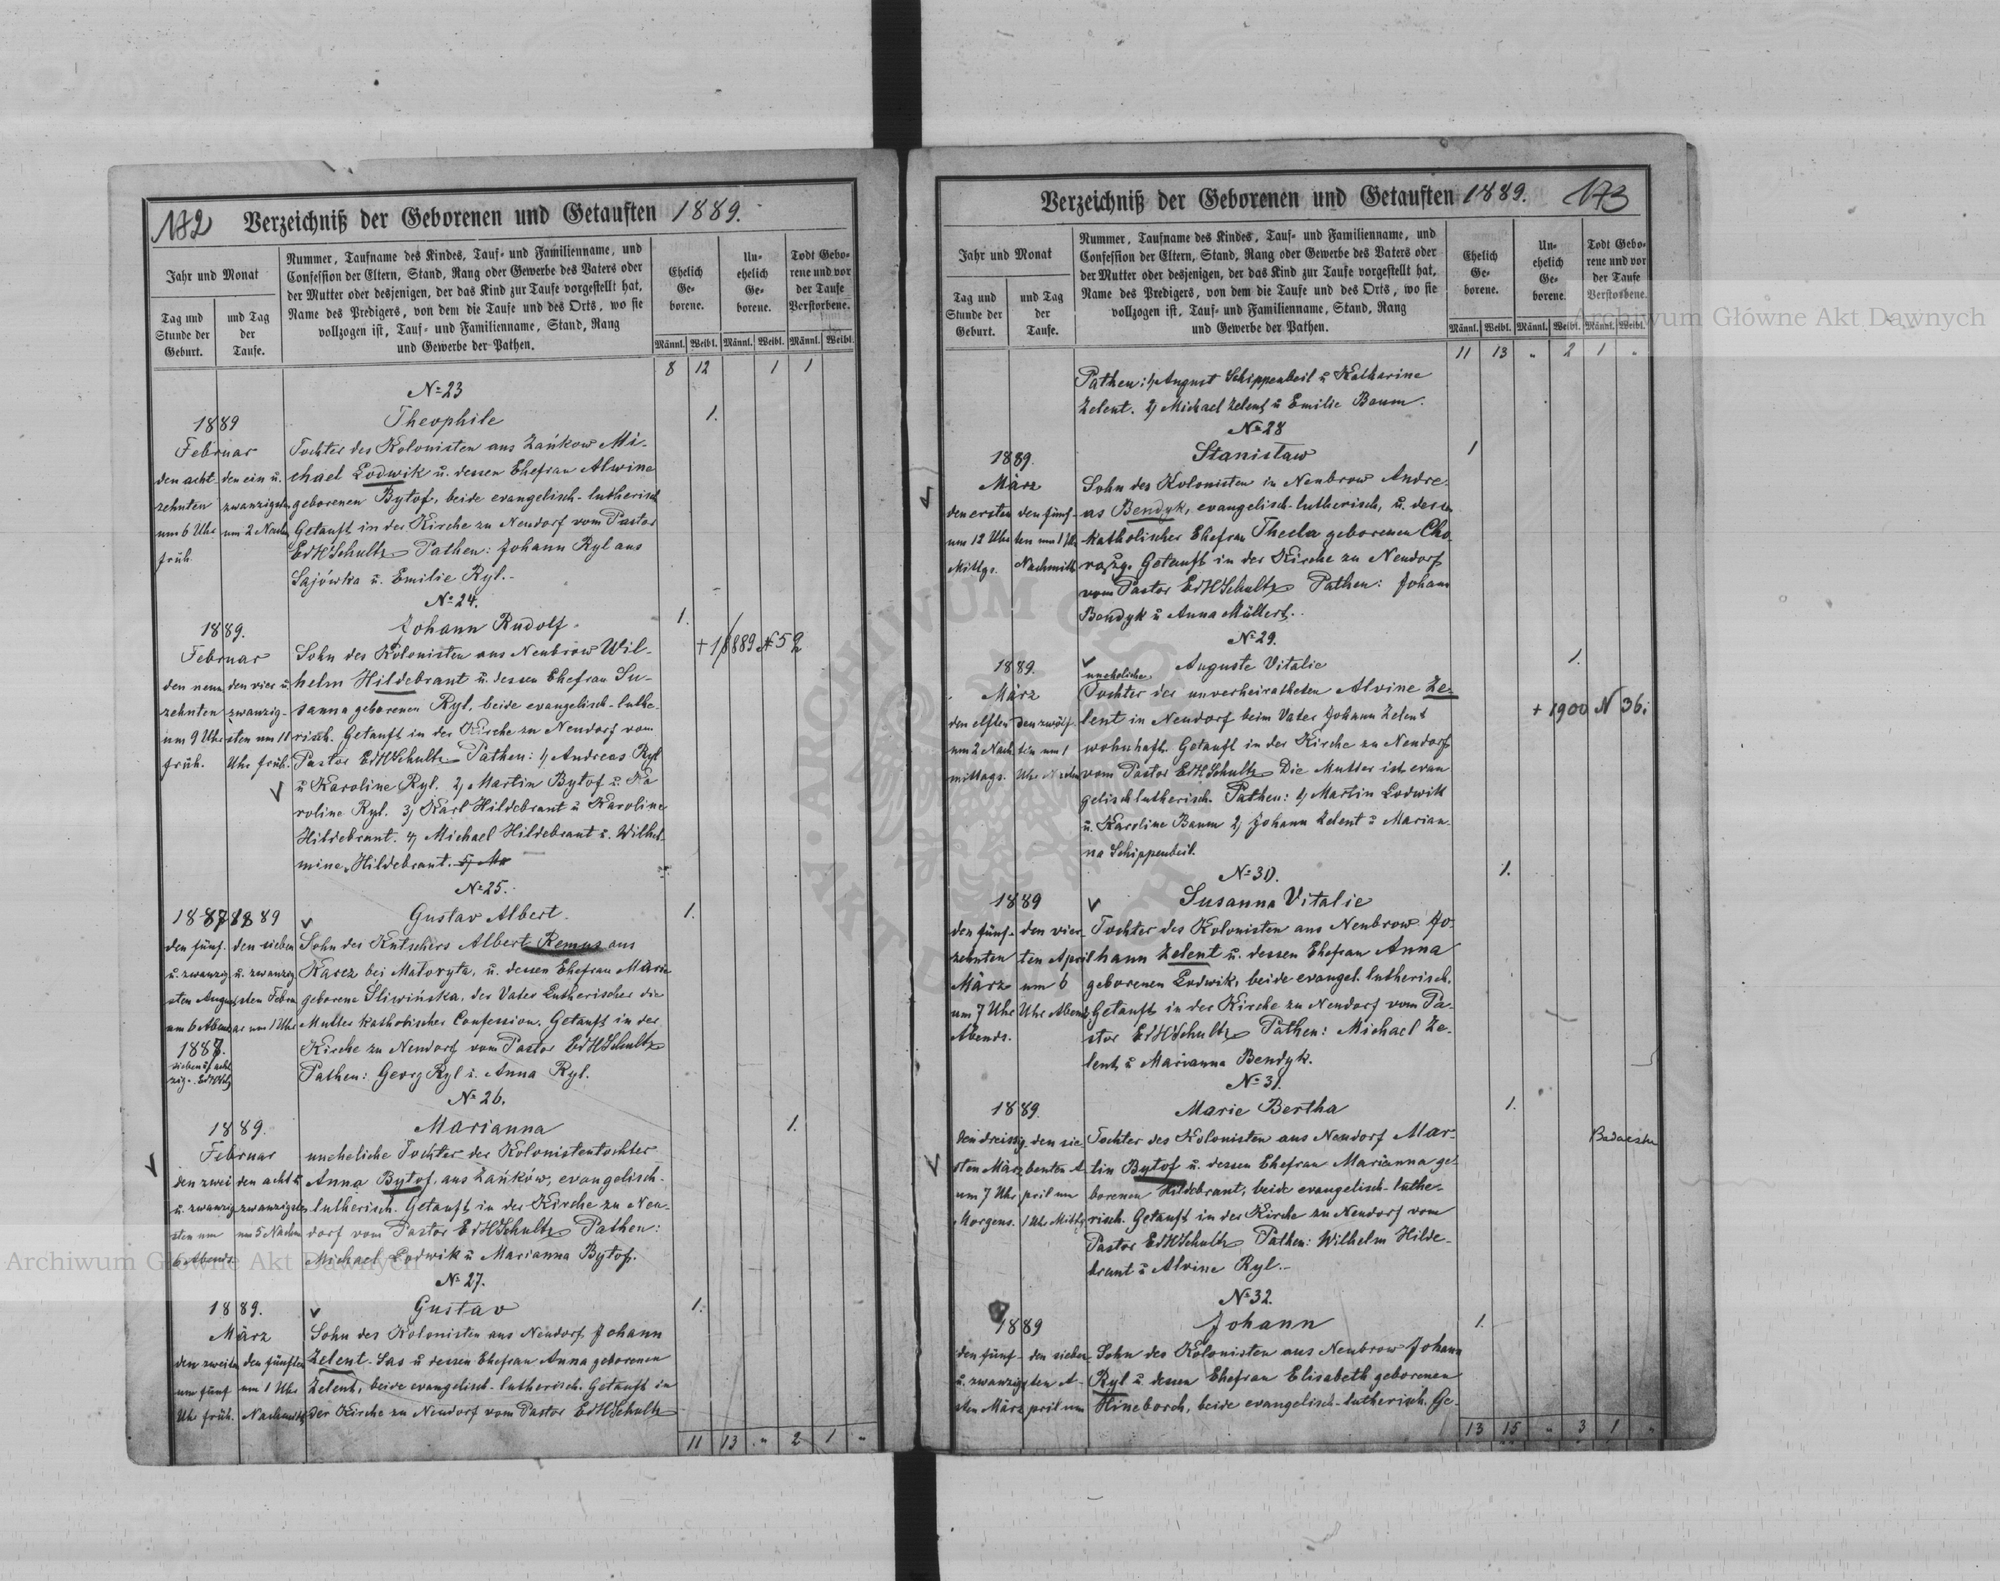 172 Verzeichniß der Geborenen und Getauften 1889.
Jahr und Monat
Tag und Stunde der Geburt.
und Tag der Taufe.
Nummer, Taufname des Kindes, Tauf- und Familienname, und
Confession der Eltern, Stand, Rang oder Gewerbe des Vaters oder
der Mutter oder desjenigen, der das Kind zur Taufe vorgestellt hat,
Name des Predigers, von dem die Taufe und des Orts, wo sie
vollzogen ist, Tauf- und Familienname, Stand, Rang
und Gewerbe der Pathen.
Ehelich Geborene.
Unehelich Geborene.
Todt Geborene und vor der Taufe Verstorbene.
Männl. Weibl. Männl. Weibl. Männl. Weibl.
8 12 1 1
No 23
1889 Theophile 1.
Februar
den achtzehnten um 6 Uhr früh.
den ein u. zwanzigsten um 2 Nachm
Tochter des Kolonisten aus Zańkow Mi-
chael Lodwik u. dessen Ehefrau Alwine
geborenen Bytof, beide evangelisch-lutherisch
Getauft in der Kirche zu Neudorf vom Pastor
EdHSchultz Pathen: Johann Ryl aus
Sajówka u. Emilie Ryl.
No 24.
1889. Johann Rudolf. 1.
+ 1889 No 59
Februar
den neunzehnten um 9 Uhr früh.
den vier u. zwanzigsten um 11 Uhr früh.
Sohn des Kolonisten aus Neubrow Wil-
helm Hildebrant u. dessen Ehefrau Su-
sanna geborenen Ryl, beide evangelisch-luthe-
risch. Getauft in der Kirche zu Neudorf vom
Pastor EdHSchultz Pathen: 1, Andreas Ryl
u Karoline Ryl. 2, Martin Bytof u. Ka
roline Ryl. 3, Karl Hildebrant u Karoline
Hildebrant. 4, Michael Hildebrant u. Wilhel-
mine Hildebrant. 5, Ma
No 25.
1887 1889 Gustav Albert. 1.
den fünf u. zwanzigsten August um 6 Abend 1887.
sieben u achtzig.
den sieben u. zwanzigsten Februar um 1 Uhr
Sohn des Kutschers Albert Remus aus
Karcz bei Matoryta, u. dessen Ehefrau Marie
geborene Sliwińska, der Vater Lutherischer die
Mutter katholischer Confession. Getauft in der
Kirche zu Neudorf vom Pastor EdHSchultz
Pathen: Georg Ryl u. Anna Ryl.
No 26.
1889. Marianna 1.
Februar
den zwei u. zwanzigsten um 6 Abends
den acht u zwanzigsten um 5 Nachm
uneheliche Tochter der Kolonistentochter
Anna Bytof, aus Zańków, evangelisch-
lutherisch. Getauft in der Kirche zu Neu-
dorf vom Pastor EdHSchultz Pathen:
Michael Lodwik u Marianna Bytof.
No 27.
1889. Gustav 1.
März
den zweiten um fünf Uhr früh.
den fünften um 1 Uhr Nachmittg
Sohn des Kolonisten aus Neudorf Johann
Zelent-Sas u dessen Ehefrau Anna geborenen
Zelent, beide evangelisch-lutherisch. Getauft in
der Kirche zu Neudorf vom Pastor EdHSchultz
11 13 " 2 1 "
Verzeichniß der Geborenen und Getauften 1889. 173
Jahr und Monat
Tag und Stunde der Geburt.
und Tag der Taufe.
Nummer, Taufname des Kindes, Tauf- und Familienname, und
Confession der Eltern, Stand, Rang oder Gewerbe des Vaters oder
der Mutter oder desjenigen, der das Kind zur Taufe vorgestellt hat,
Name des Predigers, von dem die Taufe und des Orts, wo sie
vollzogen ist, Tauf- und Familienname, Stand, Rang
und Gewerbe der Pathen.
Ehelich Geborene.
Unehelich Geborene.
Todt Geborene und vor der Taufe Verstorbene.
Männl. Weibl. Männl. Weibl. Männl. Weibl.
11 13 " 2 1 "
Pathen: 1, August Schippenbeil u Katharine
Zelent. 2, Michael Zelent u Emilie Baum.
No 28
1889. Stanisław 1
März
den ersten um 12 Uhr Mittgs.
den fünften um 1 Uhr Nachmitt
Sohn des Kolonisten in Neubrow Andre-
as Bendyk, evangelisch-lutherisch, u. dessen
katholischer Ehefrau Thecla geborenen Cho
rąży. Getauft in der Kirche zu Neudorf
vom Pastor EdHSchultz Pathen: Johann
Bendyk u Anna Müllert.
No 29.
1889. Auguste Vitalie 1.
+ 1900 N 36.
März
den elften um 2 Nachmittags.
den zwölften um 1 Uhr Nachm
uneheliche
Tochter der unverheiratheten Alvine Ze-
lent in Neudorf beim Vater Johann Zelent
wohnhaft. Getauft in der Kirche zu Neudorf
vom Pastor EdHSchultz Die Mutter ist evan
gelisch lutherisch. Pathen: 1, Martin Lodwik
u. Karoline Baum 2, Johann Zelent u Marian-
na Schippenbeil.
No 30. 1.
1889 Susanna Vitalie
den fünfzehnten März um 7 Uhr Abends.
den vierten April um 6 Uhr Abend
Tochter des Kolonisten aus Neubrow Jo-
hann Zelent u. dessen Ehefrau Anna
geborenen Lodwik, beide evangel. lutherisch.
Getauft in der Kirche zu Neudorf vom Pa-
stor EdHSchultz Pathen: Michael Ze-
lent u Marianna Bendyk.
No 31.
1889. Marie Bertha 1.
den dreissigsten März um 7 Uhr Morgens.
den siebenten April um 1 Uhr Mittg
Tochter des Kolonisten aus Neudorf Mar-
tin Bytof u. dessen Ehefrau Marianna ge-
borenen Hildebrant, beide evangelisch-luthe-
risch. Getauft in der Kirche zu Neudorf vom
Pastor EdHSchultz Pathen: Wilhelm Hilde-
brant u Alvine Ryl.
No 32.
1889 Johann 1.
den fünf u. zwanzigsten März
den siebenten April um
Sohn des Kolonisten aus Neubrow Johann
Ryl u. dessen Ehefrau Elisabeth geborenen
Hineborch, beide evangelisch-lutherisch. Ge-
13 15 " 3 1 "
Archiwum Główne Akt Dawnych
Archiwum Główne Akt Dawnych
ARCHIWUM GŁÓWNE AKT DAWNYCH